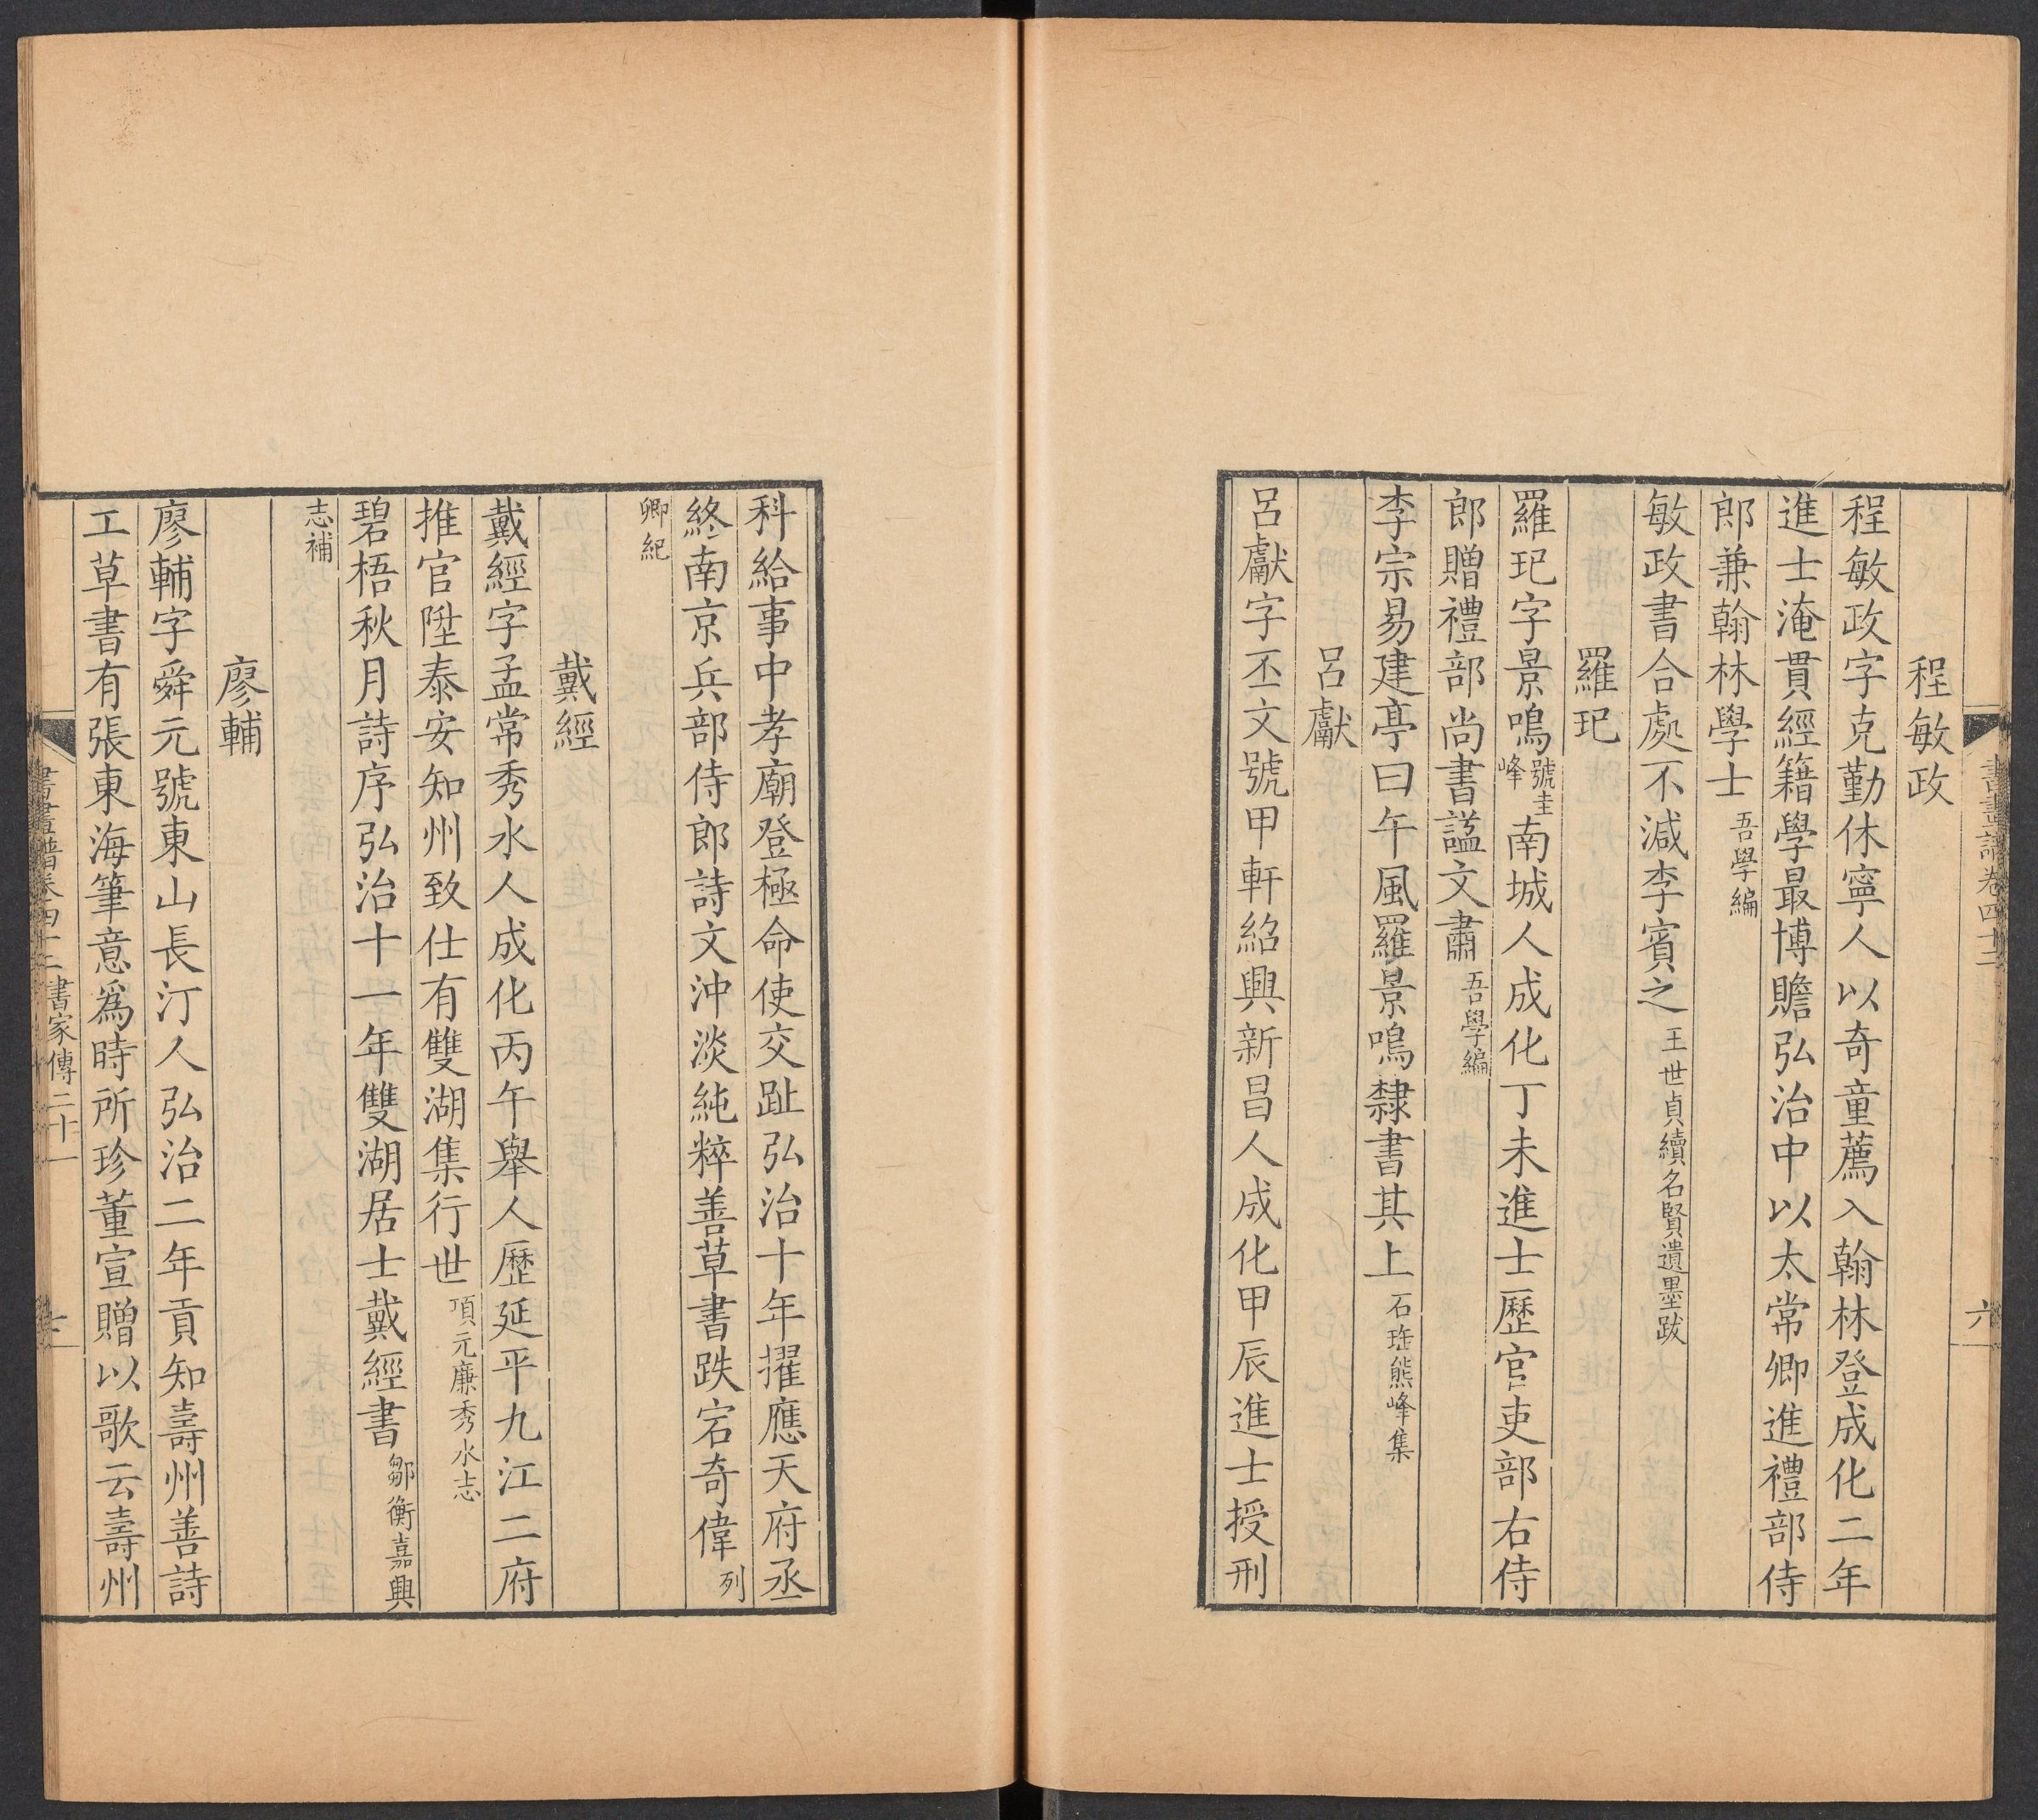 書畫譜卷四十二 六
程敏政
程敏政字克勤休寧人以奇童薦入翰林登成化二年
進士淹貫經籍學最博贍弘治中以太常卿進禮部侍
郎兼翰林學士吾學編
敏政書合處不減李賓之王世貞續名賢遺墨跋
羅玘
羅玘字景鳴號圭峰南城人成化丁未進士歷官吏部右侍
郎贈禮部尚書諡文肅吾學編
李宗易建亭曰午風羅景鳴隸書其上石珤熊峰集
呂獻
呂獻字丕文號甲軒紹興新昌人成化甲辰進士授刑
科給事中孝廟登極命使交趾弘治十年擢應天府丞
終南京兵部侍郎詩文沖淡純粹善草書跌宕奇偉列
卿紀
戴經
戴經字孟常秀水人成化丙午舉人歷延平九江二府
推官陞泰安知州致仕有雙湖集行世項元廉秀水志
碧梧秋月詩序弘治十一年雙湖居士戴經書鄒衡嘉興
志補
廖輔
廖輔字舜元號東山長汀人弘治二年貢知壽州善詩
工草書有張東海筆意為時所珍董宣贈以歌云壽州
書畫譜卷四十二 書家傳二十一